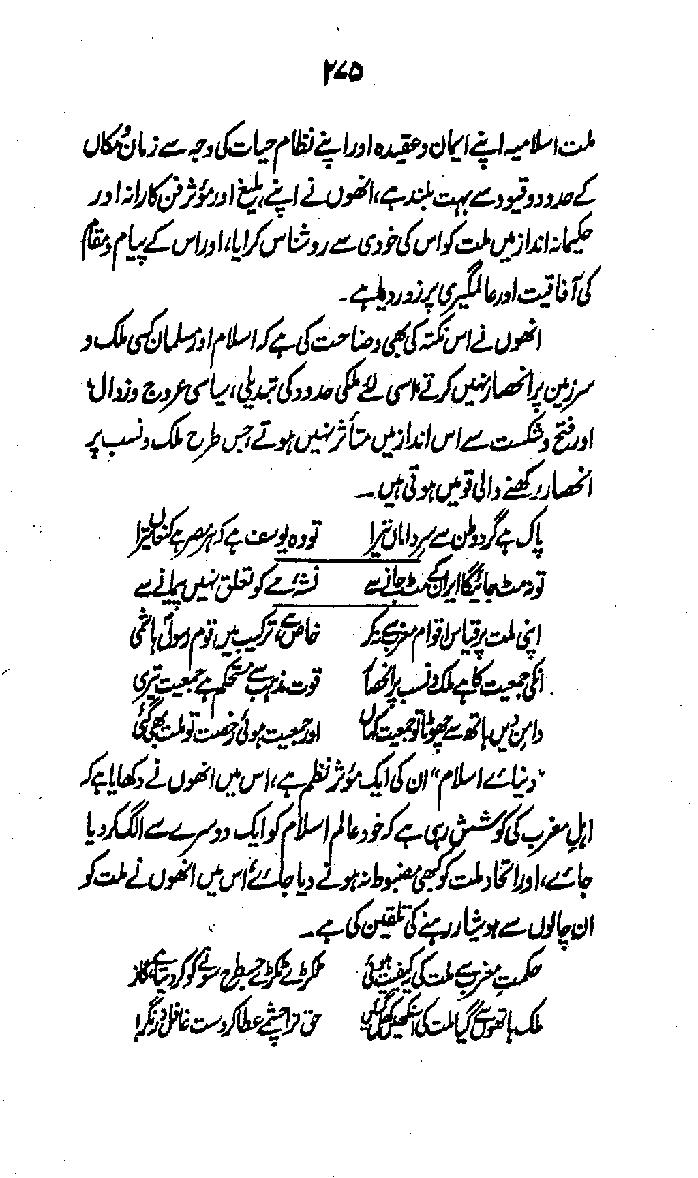 ۲۷۵
ملت اسلامیہ اپنے ایمان و عقیدہ اور اپنے نظام حیات کی وجہ سے زمان و مکاں
کے حدود و قیود سے بہت بلند ہے، انھوں نے اپنے بلیغ اور مؤثر فن کارانہ اور
حکیمانہ انداز میں ملت کو اس کی خودی سے روشناس کرایا، اور اس کے پیام و مقام
کی آفاقیت اور عالمگیری پر زور دیا ہے۔
انھوں نے اس نکتہ کی بھی وضاحت کی ہے کہ اسلام اور مسلمان کسی ملک و
سرزمین پر انحصار نہیں کرتے، اسی لئے ملکی حدود کی تبدیلی، سیاسی عروج و زوال،
اور فتح و شکست سے اس انداز میں متأثر نہیں ہوتے، جس طرح ملک و نسب پر
انحصار رکھنے والی قومیں ہوتی ہیں۔
پاک ہے گرد وطن سے سر داماں تیرا تو وہ یوسف ہے کہ ہر مصر ہے کنعاں تیرا
تو نہ مٹ جائیگا ایران کے مٹ جانے سے نشۂ مے کو تعلق نہیں پیمانے سے
اپنی ملت پر قیاس اقوام مغرب سے نہ کر خاص ہے ترکیب میں قوم رسول ہاشمی
انکی جمعیت کا ہے ملک و نسب پر انحصار قوت مذہب سے مستحکم ہے جمعیت تیری
دامن دیں ہاتھ سے چھوٹا تو جمعیت کہاں اور جمعیت ہوئی رخصت تو ملت بھی گئی
"دنیائے اسلام" ان کی ایک مؤثر نظم ہے، اس میں انھوں نے دکھایا ہے کہ
اہل مغرب کی کوشش رہی ہے کہ خود عالم اسلام کو ایک دوسرے سے الگ کر دیا
جائے، اور اتحاد ملت کو کبھی مضبوط نہ ہونے دیا جائے، اس میں انھوں نے ملت کو
ان چالوں سے ہوشیار رہنے کی تلقین کی ہے۔
حکمت مغرب سے ملت کی یہ کیفیت ہوئی ٹکڑے ٹکڑے جس طرح سونے کو کر دیتا ہے گاز
ملک ہاتھوں سے گیا ملت کی آنکھیں کھل گئیں حق ترا چشمے عطا کردست غافل در نگر